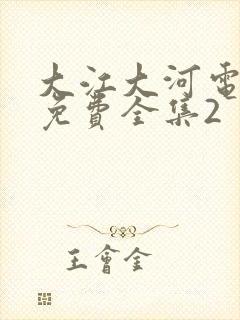 大江大河電
免費全集2
王會全